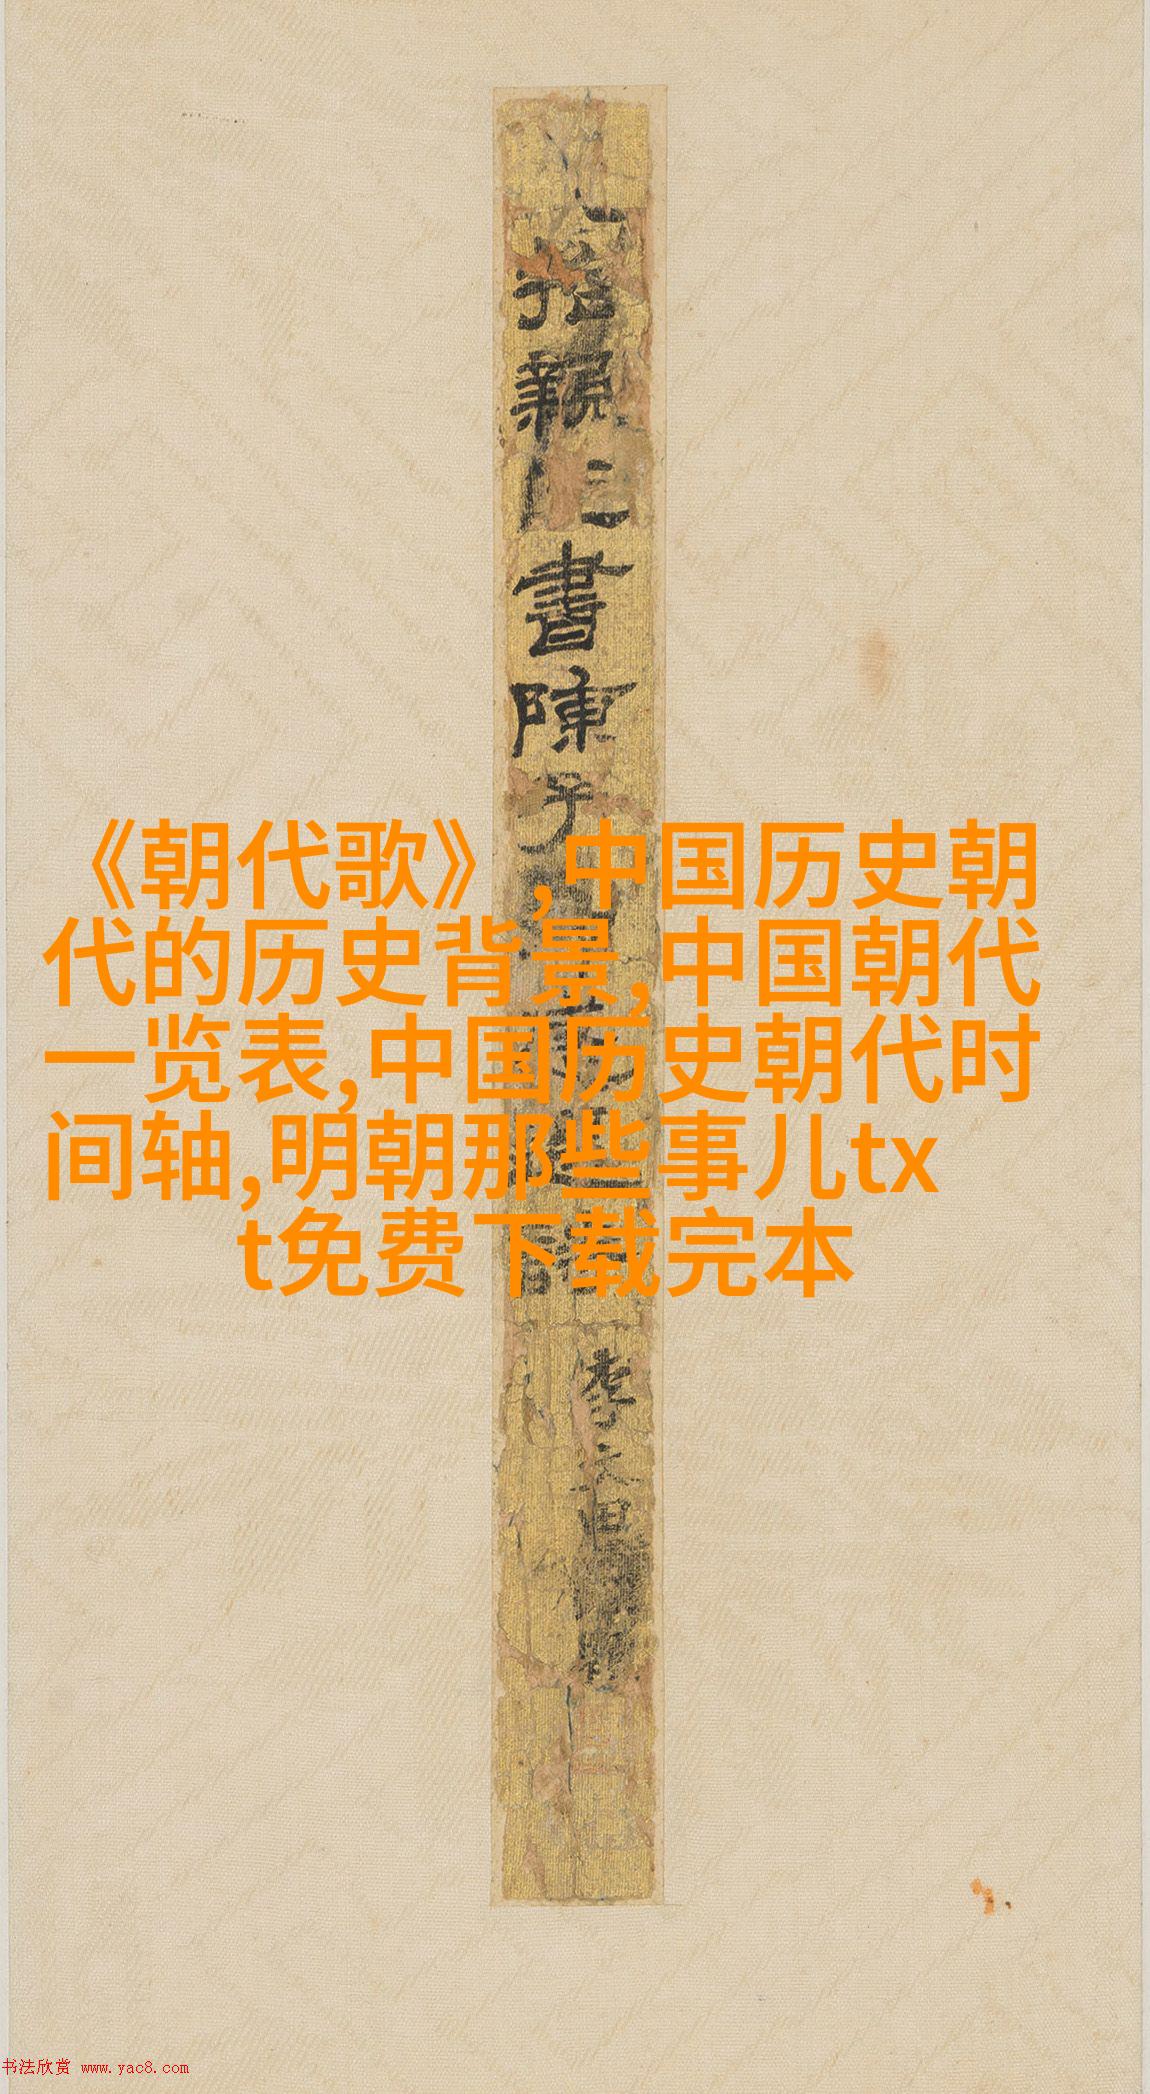 《朝代歌》,中国历史朝
代的历史背景,中国朝代
一览表,中国历史朝代时
间轴,明朝那些事儿tx
t免费下载完本
書陳子
李文田
书法欣赏 www.yac8.com